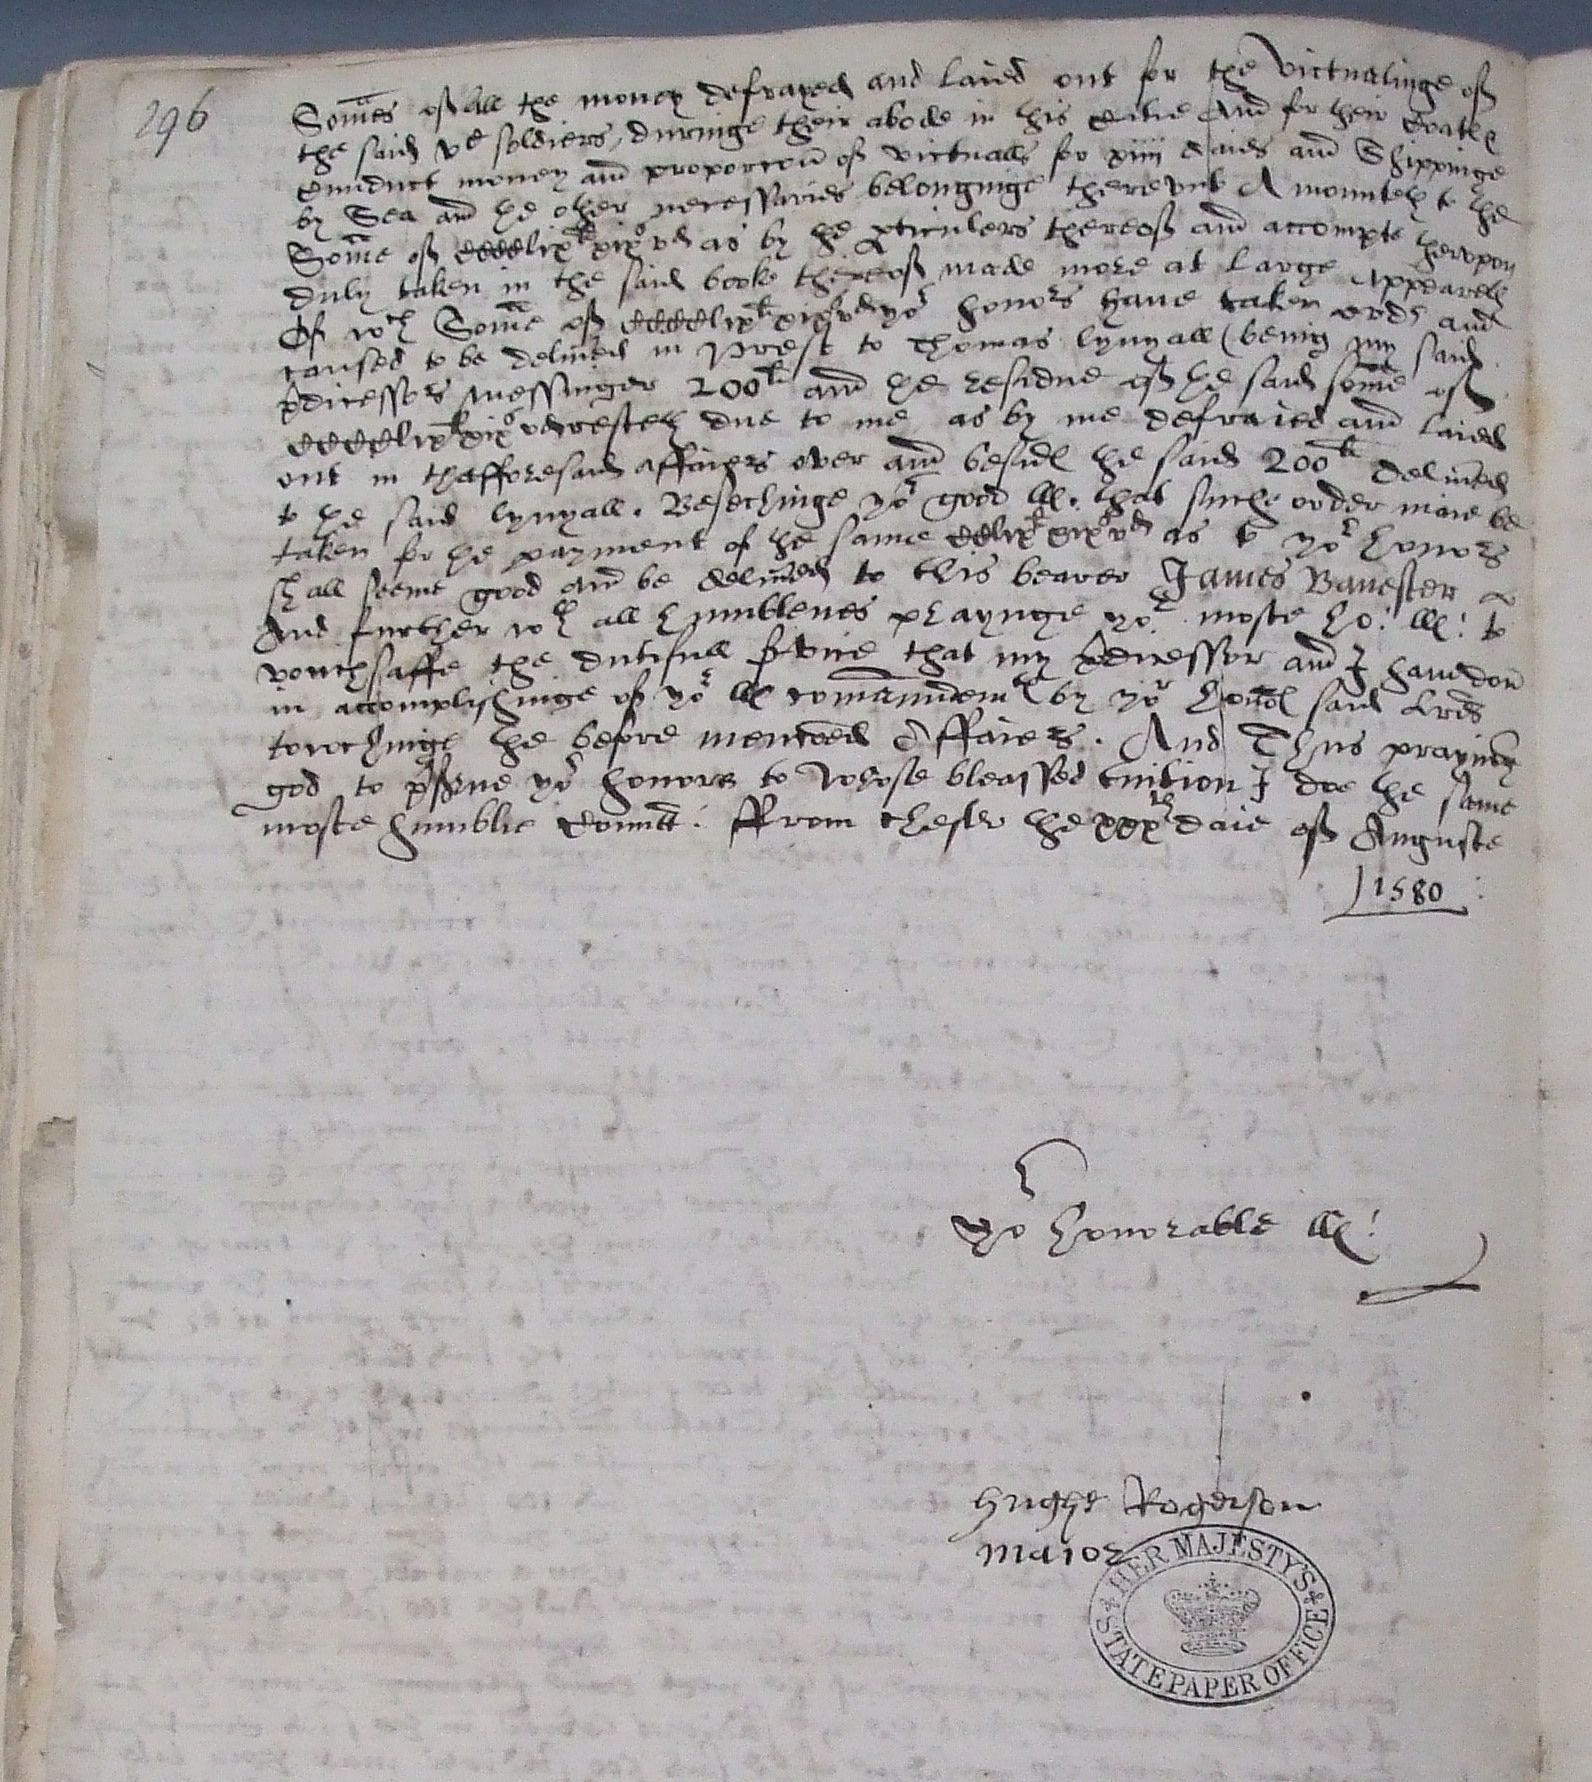 296
Somes of all the money defrayed and laied out for the victualinge of
the said vc soldiers, duringe their abode in this Citie And for their Coate &
Conduct money and proporcon of victualls for xiiii daies and Shippinge
by Sea and the other necessaries belonginge therevnto Amounteth to the
Some of CCCClixli xixs vd as by the pticulers thereof and accompte therevpon
duly taken in the said booke thereof made more at large Appeareth
Of wch Some of CCCClixli xixs vd yor honors haue taken ordr and
caused to be delived in Prest to Thomas lynyall (being my said
pdicessors messinger 200li and the residue of the said some of
CCCClixli xixs vd resteth due to me as by me defraied and laied
out in thafforesaid affaiers over and beside the said 200li delived
to the said lynyall. Besechinge yor good ll. that suche order maie be
taken for the payment of the same CClixli xixs vd as to yor honors
shall seeme good and be delived to this bearer James Banester
And further wth all humblenes prayinge yor moste ho: ll: to
vouchsaffe the dutifull svice that my pdicessor and I haue don
in accomplishinge of yor ll comaundemt by yor hon said lres
towchinge the before menconed Affaiers. And Thus prayinge
god to pserue yor honors to whose bleassed tuition I doe the same
moste humblie comitt. From Chester the xxxth daie of Auguste
1580
Yor honorable ll:
Hughe Rogerson
maior
HER MAJESTY'S
STATE PAPER OFFICE